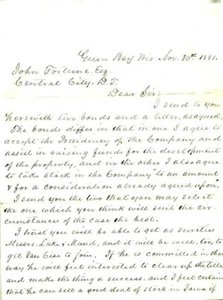 Green Bay, Wis. Nov. 30th 1881.
John Fortune, Esq
Central City, D.T.
Dear Sir:
I send to you
herewith two bonds and a letter, as agreed.
The bonds differ in that in one I agree to
accept the Presidency of the Company and
assist in raising funds for the development
of the property, and in the other I also agree
to take stock in the Company to an amount
& for a consideration already agreed upon.
I send you the two that you may select
the one which you think will suit the cir-
cumstances of the case the best.
I trust you will be able to get as
Messrs. Lake & and it will be
get to join. If he is committed in that
way he will feel interested to clear up titles
and make the thing a success, and I feel certain
that he can sell a good deal of stock in